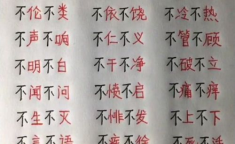 不伦不类 不依不饶 不冷不热
不声不响 不仁不义 不管不顾
不明不白 不干不净 不破不立
不闻不问 不愤不启 不痛不痒
不生不灭 不悱不发 不上不下
不言不语 不疾不徐